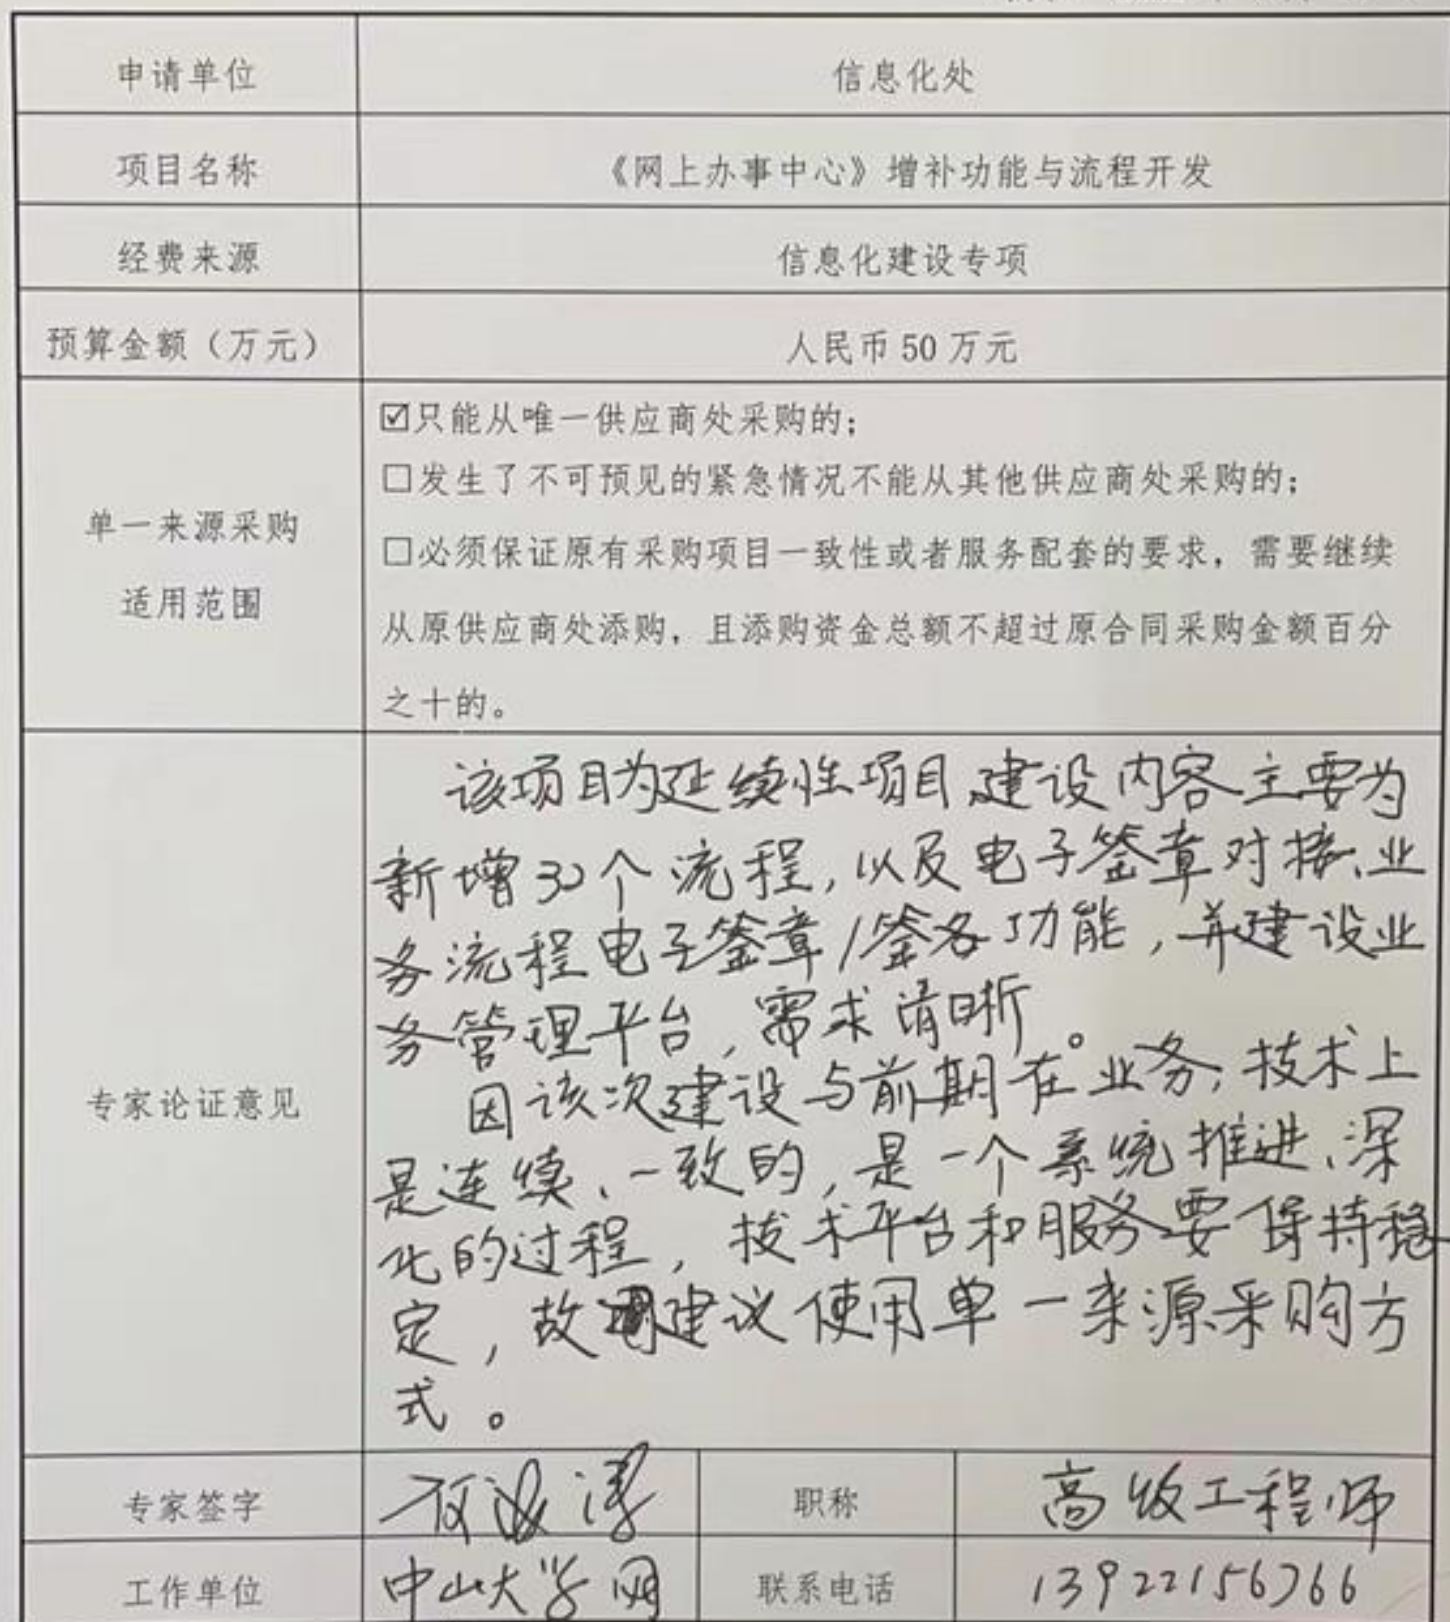 申请单位 信息化处
项目名称 《网上办事中心》增补功能与流程开发
经费来源 信息化建设专项
预算金额（万元） 人民币 50 万元
☑只能从唯一供应商处采购的；
□发生了不可预见的紧急情况不能从其他供应商处采购的；
单一来源采购
□必须保证原有采购项目一致性或者服务配套的要求，需要继续
适用范围
从原供应商处添购，且添购资金总额不超过原合同采购金额百分
之十的。
该项目为延续性项目,建设内容主要为
新增30个流程,以及电子签章对接、业
务流程电子签章/签名功能,并建设业
务管理平台,需求清晰。
专家论证意见
因该次建设与前期在业务,技术上
是连续、一致的,是一个系统推进、深
化的过程,技术平台和服务要保持稳
定,故建议使用单一来源采购方
式。
专家签字 职称 高级工程师
工作单位 中山大学网 联系电话 13922156766